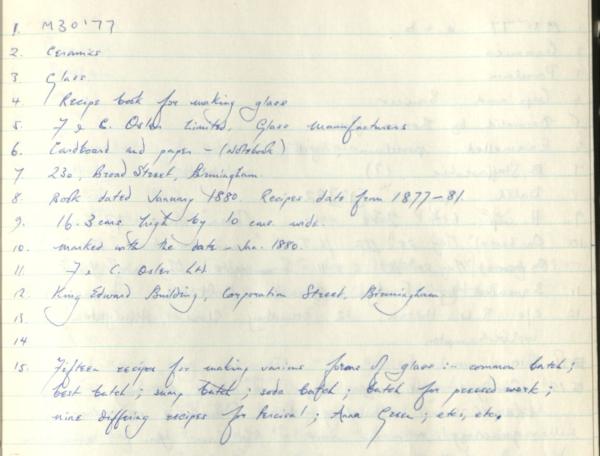 1. M30'77
2. Ceramics
3. Glass
4. Recipe book for making glass
5. F & C. Osler Limited, Glass manufacturers
6. Cardboard and paper - (Notebook)
7. 230, Broad Street, Birmingham
8. Book dated January 1880. Recipes date from 1877-81.
9. 16.3 cms high by 10 cms. wide.
10. marked with the date - Jan. 1880.
11. F & C. Osler Ltd.
12. King Edward Building, Corporation Street, Birmingham
13
14
15. Fifteen recipes for making various forms of glass :- common batch ;
best batch ; batch ; soda batch ; batch for pressed work ;
nine differing recipes for Percival ; Anna Green ; etc, etc.